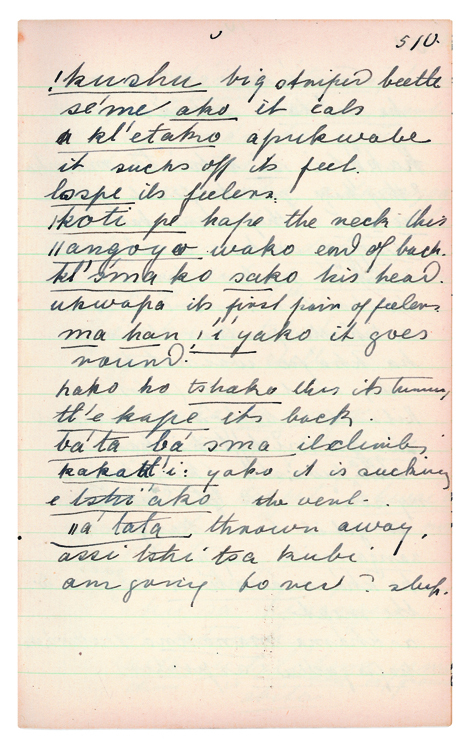 510.
!kushu big striped beetle
se'me ako it eats
a kl'etako apukwabe
it sucks off its feet.
lospe its feelers.
|koti pe hape the neck this
||angoya wako end of back.
kl'sma ko sako his head.
ukwapa its first pair of feelers.
ma han !'i'yako it goes
round.
hako ho tshako this its tummy
tl'e kape its back.
ba'ta ba' sma it climbs
kakatl'i: yako it is sucking
e tshi'ako the
||a' tata thrown away.
assi tshi' tsa kubi
am going to ? sleep.